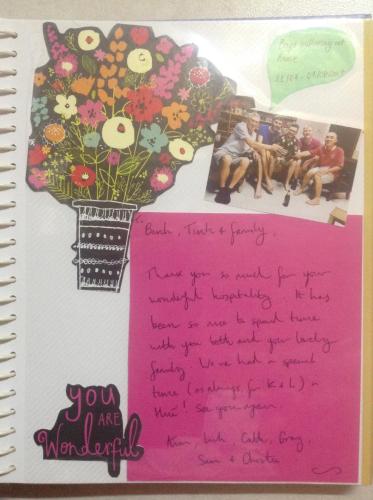 Boys
at
home
"Banh, Tinh & family,
Thank you so much for your
wonderful hospitality. It has
been so nice to spend time
with you both and your lovely
family. We've had a special
time (as always for K & L) in
Hué! See you again.
Kim, Linh, Cath, Greg,
Sam &
you
ARE
Wonderful